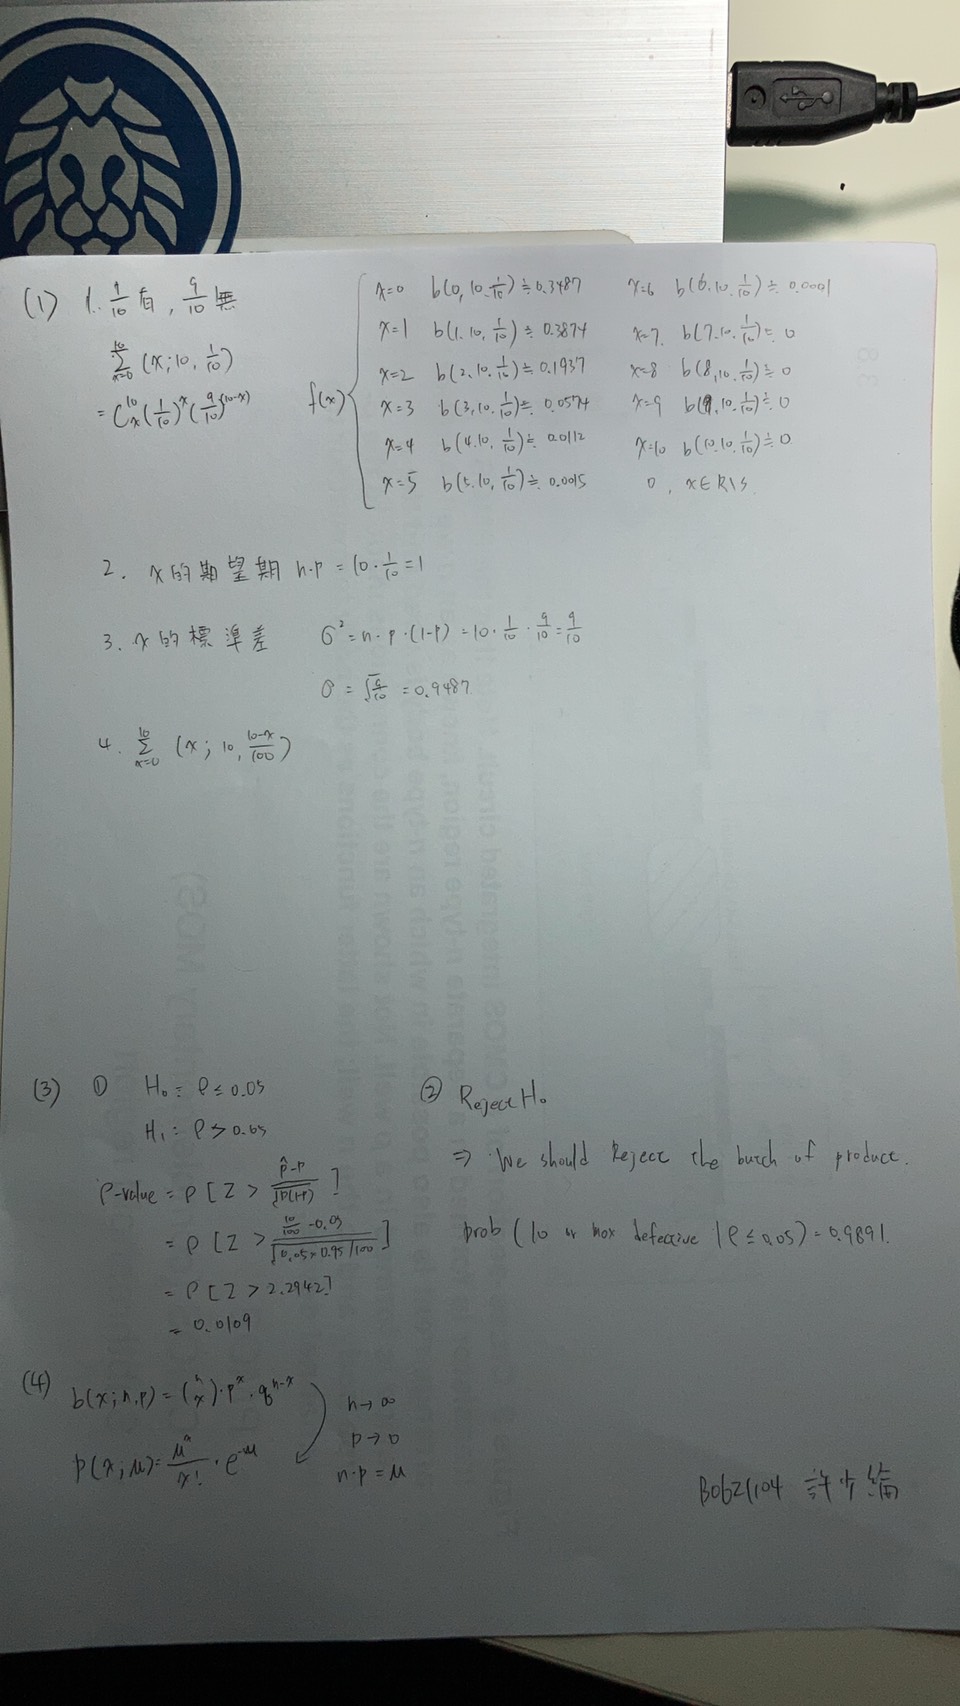 (1) 1. 1/10 有, 9/10 無
10 Σ x=0 (x; 10, 1/10)
= C 10 x (1/10)^x (9/10)^(10-x)
f(x) {
x=0 b(0, 10, 1/10) ≒ 0.3487
x=1 b(1, 10, 1/10) ≒ 0.3874
x=2 b(2, 10, 1/10) ≒ 0.1937
x=3 b(3, 10, 1/10) ≒ 0.0574
x=4 b(4, 10, 1/10) ≒ 0.0112
x=5 b(5, 10, 1/10) ≒ 0.0015
x=6 b(6, 10, 1/10) ≒ 0.0001
x=7, b(7, 10, 1/10) ≒ 0
x=8 b(8, 10, 1/10) ≒ 0
x=9 b(9, 10, 1/10) ≒ 0
x=10 b(10, 10, 1/10) ≒ 0
0, x∈R\S
2. x的期望期 n·p = 10 · 1/10 = 1
3. x的標準差 σ² = n·p·(1-p) = 10 · 1/10 · 9/10 = 9/10
σ = √(9/10) = 0.9487
4. 10 Σ x=0 (x; 10, (10-x)/100)
(3) ① H₀ = P ≤ 0.05
H₁ = P > 0.05
P-value = P [Z > (p̂-p)/√(p(1-p)) ]
= P [Z > (10/100 - 0.05)/√(0.05×0.95/100) ]
= P [Z > 2.2942]
= 0.0109
② Reject H₀
⇒ We should Reject the batch of product.
prob (10 or mox defective | P ≤ 0.05) = 0.9891.
(4) b(x; n, p) = (n x) · p^x · q^(n-x)
p(x; μ) = μ^x/x! · e^-μ
n→∞
p→0
n·p = μ
B0621104 許